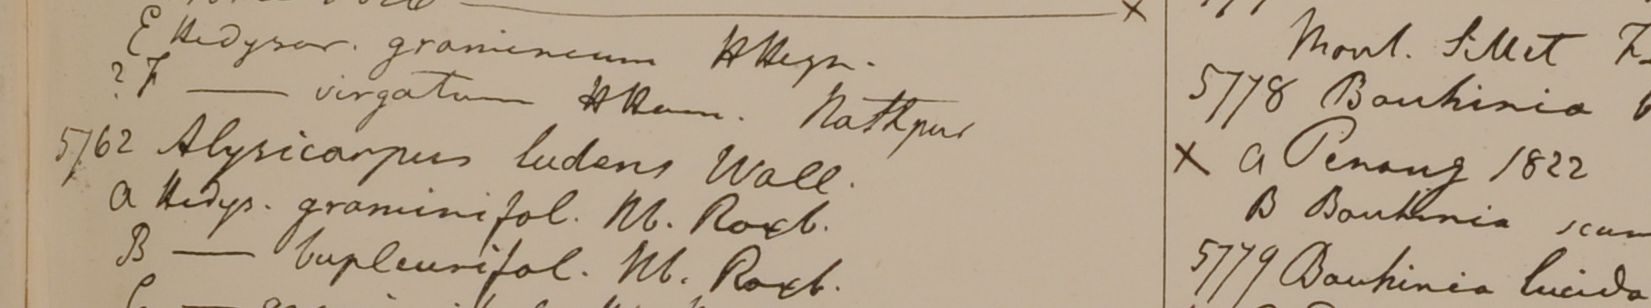 E Hedysar. gramineum HHeyn.
? F — virgatum HHam. Nathpur
5762 Alysicarpus ludens Wall.
a Hedys. graminifol. Hb. Roxb.
B — bupleurifol. Hb. Roxb.
Mont. Sillet
5778 Bauhinia
X a Penang 1822
B Bauhinia
5779 Bauhinia lucida